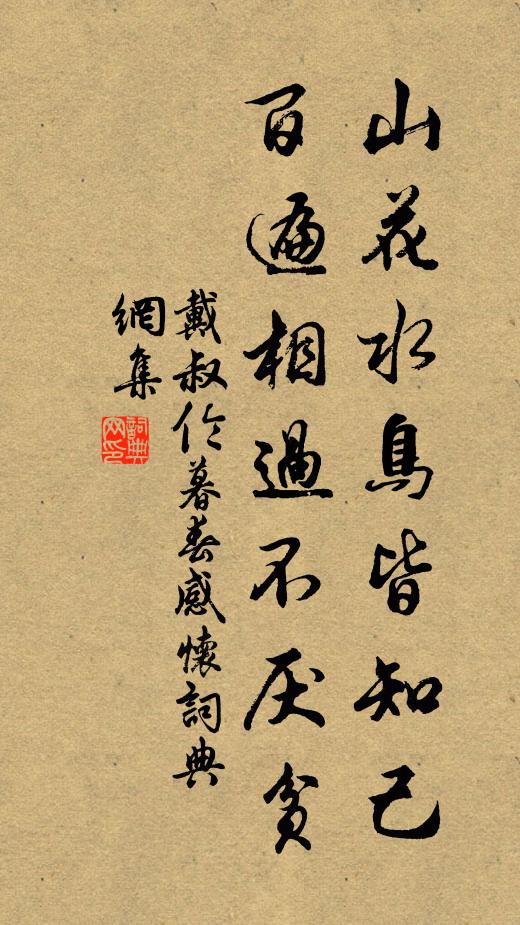 山花水鳥皆知己
百遍相過不厌貧
戴叔伦暮春感懷詞典
網集
詞典網印